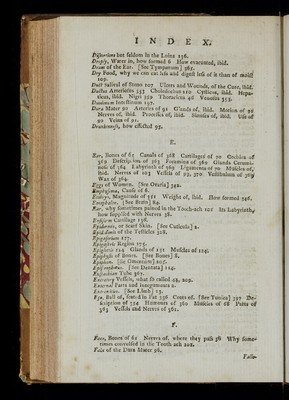 INDEX.
Distortions but seldom in the Loins 156.
Dropsy, Water in, how formed 6 How evacuated, ibid.
Drum of the Ear. [See Tympanum] 365.
Dry Food, why we can eat less and digest less of it than of moist
109.
Duct salival of Steno 107 Ulcers and Wounds, of the Cure, ibid.
Ductus Arteriosus 353 Choledochus 210 Cysticus, ibid. Hepa-
ticus, ibid. Nigri 359 Thoracicus 46 Venosus 355.
Duodenum Intestinum 197.
Dura Mater 90 Arteries of 91 Glands of, ibid. Motion of 96
Nerves of, ibid. Processes of, ibid. Sinuses of, ibid. Use of
90 Veins of 91.
Drunkenness, how effected 95.
E.
Ear, Bones of 65 Canals of 368 Cartilages of 70 Cochlea of
369 Description of 363 Foramina of 369 Glands Cerumi-
nose of 364 Labyrinth of 369 Ligaments of 70 Muscles of,
ibid. Nerves of 103 Vessels of 93, 370 Vestibulum of 369
Wax of 364.
Eggs of Women. [See Ovaria] 342.
Emphysema, Cause of 6.
Embryo, Magnitude of 351 Weight of, ibid. How formed 346.
Encephalon. [See Brain] 89.
Ear, why sometimes pained in the Tooth-ach 101 Its Labyrinth,
how supplied with Nerves 38.
Ensiform Cartilage 136.
Epidermis, or Scarf Skin. [See Cuticula] 2.
Epididimis of the Testicles 328.
Epigastrium 177.
Epigastric Region 175.
Epiglottis 124 Glands of 131 Muscles of 129.
Epiphysis of Bones. [See Bones] 8.
Epiploon. [See Omentum] 207.
Epistropheus. [See Dentata] 114.
Eustachian Tube 367.
Excretory Vessels, what so called 29, 209.
External Parts and Integuments 2.
Extremities. [See Limbs] 13.
Eye, Ball of, seated in Fat 356 Coats of. [See Tunics] 357 De-
scription of 354 Humours of 360 Muscles of 68 Parts of
363 Vessels and Nerves of 361.
F.
Face, Bones of 61 Nerves of, where they pass 38 Why some-
times convulsed in the Tooth-ach 101.
Falx of the Dura Mater 96.